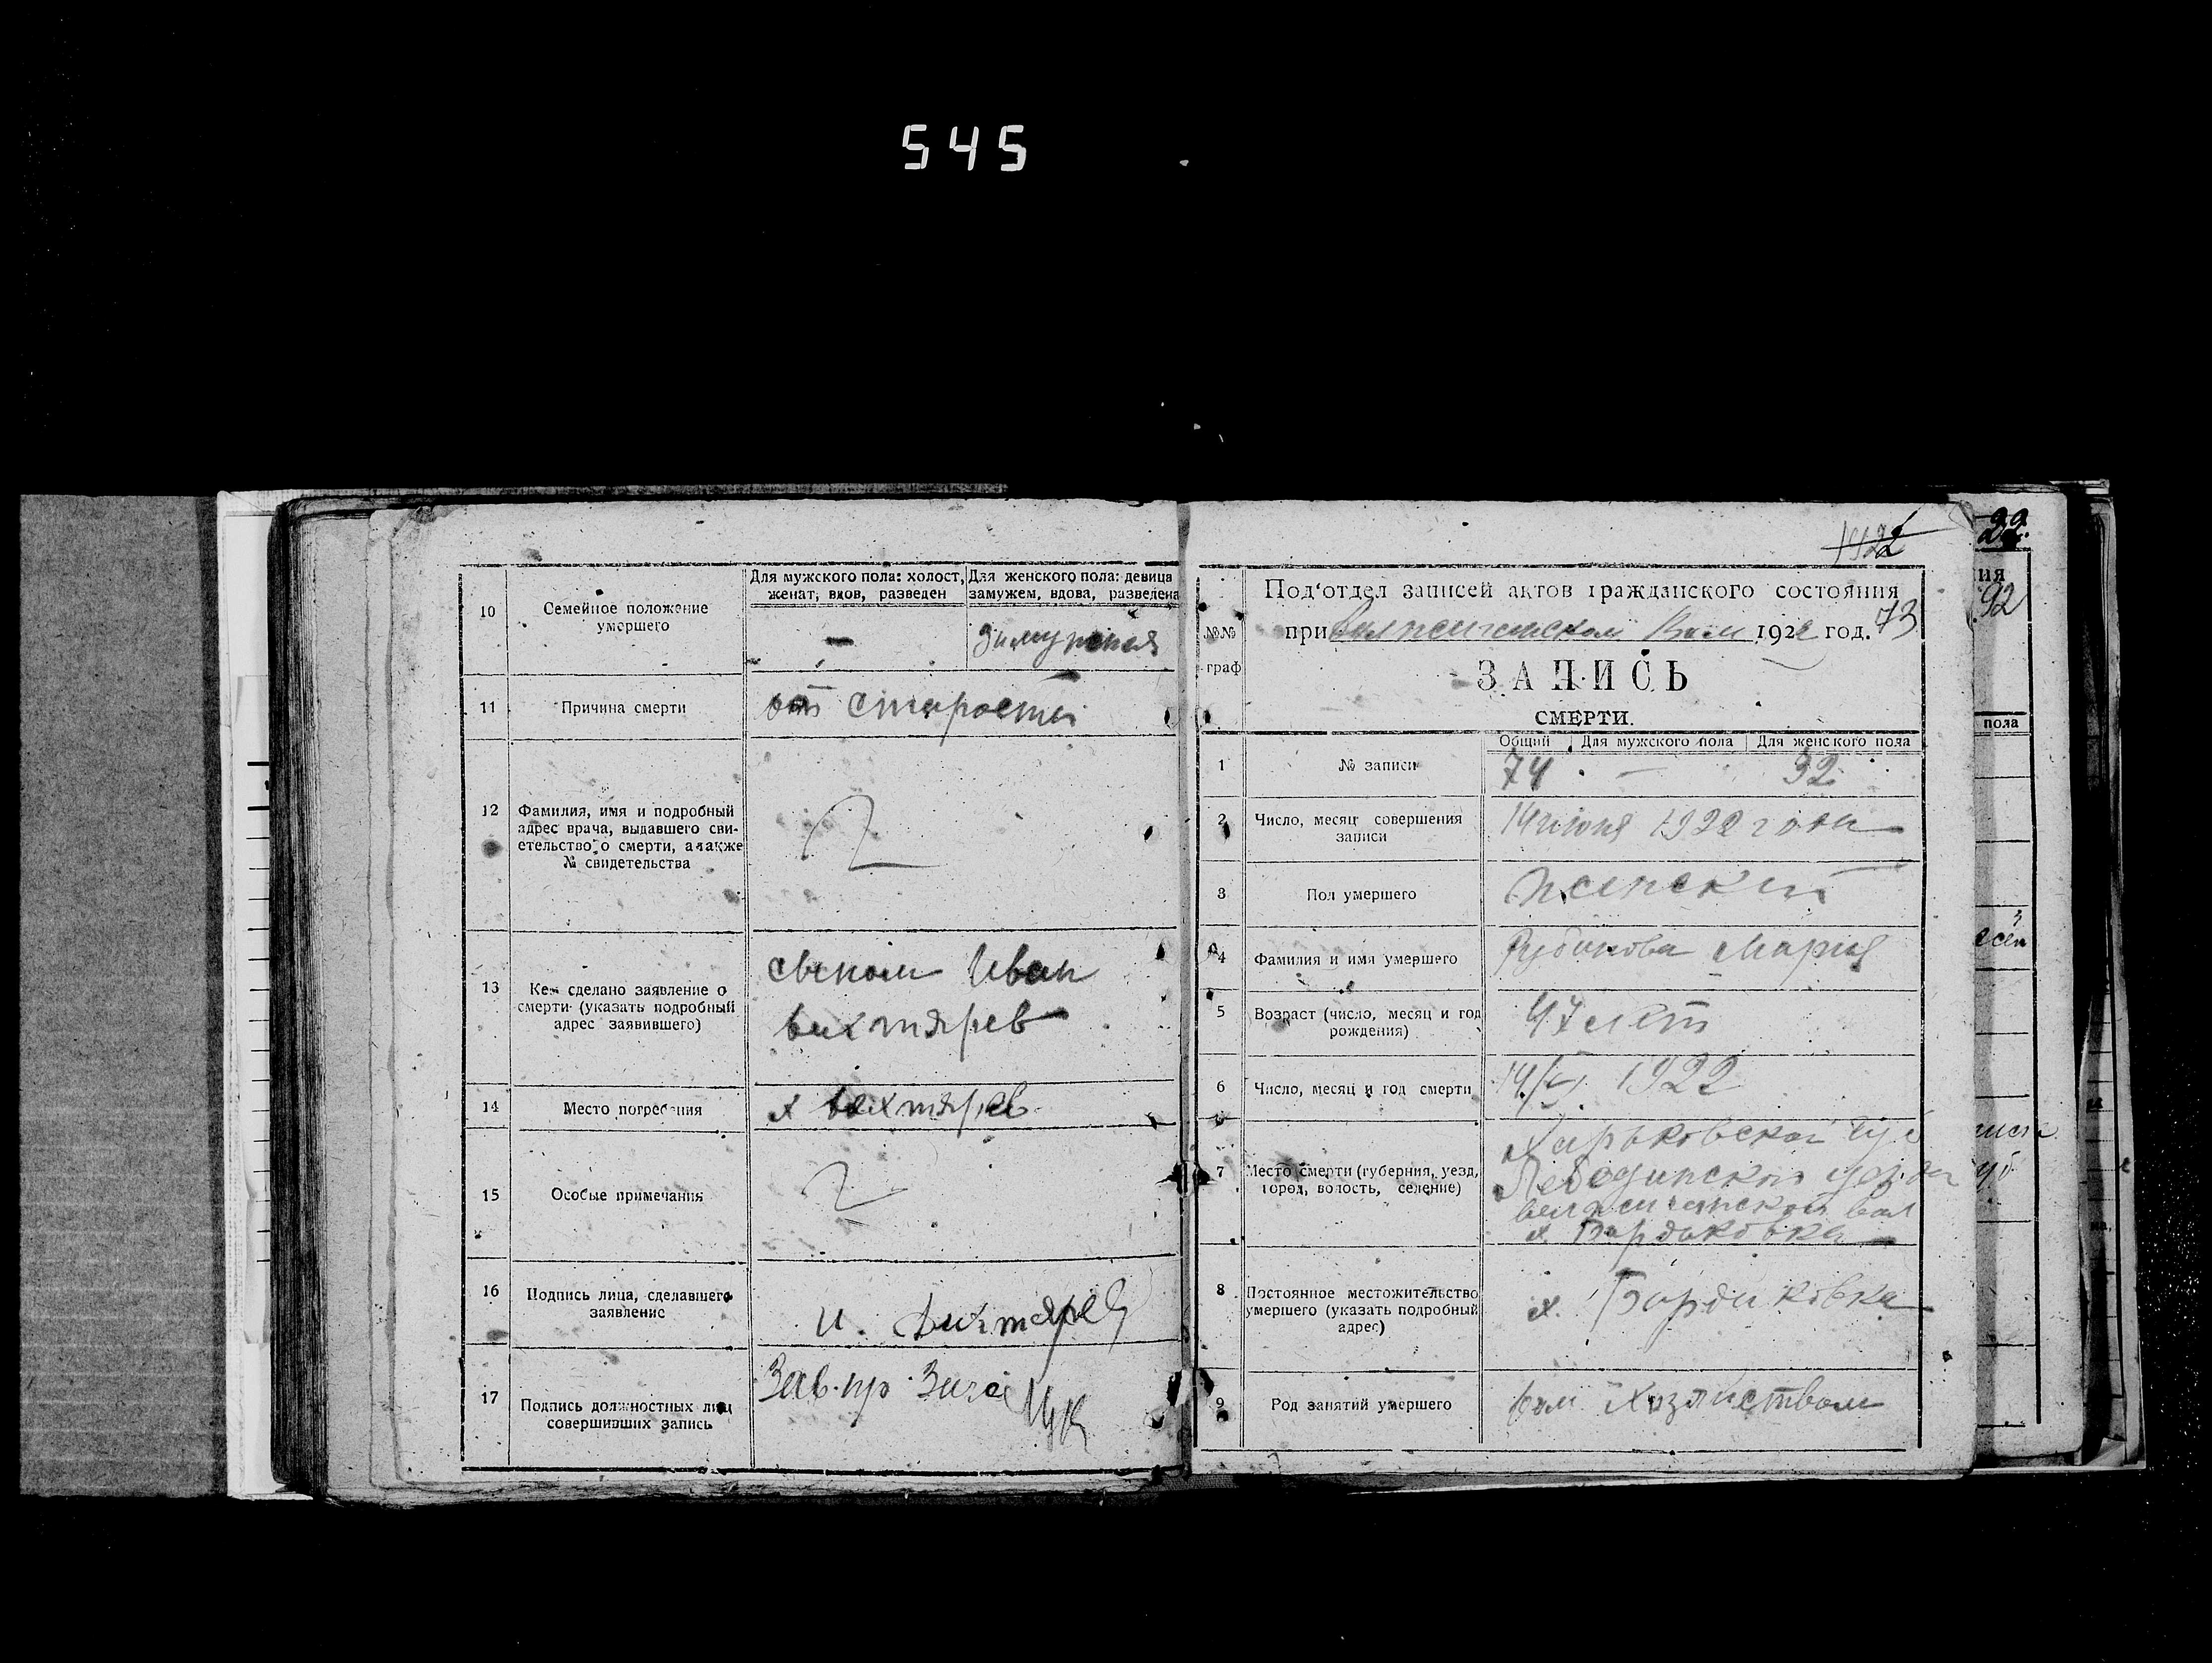 545
10
Семейное положение
умершего
Для мужского пола: холост,
женат, вдов, разведен
Для женского пола: девица
замужем, вдова, разведена
—
11
Причина смерти
от старости
12
Фамилия, имя и подробный
адрес врача, выдавшего сви-
етельство о смерти, а также
№ свидетельства
13
Кем сделано заявление о
смерти (указать подробный
адрес заявившего)
Иван
вихтярев
14
Место погребения
х вехтярев
15
Особые примечания
16
Подпись лица, сделавшего
заявление
И.
17
Подпись должностных лиц
совершивших запись
Зав.
1922
№№
граф
Под'отдел записей актов гражданского состояния
при 1922 год. 73
ЗАПИСЬ
СМЕРТИ.
Общий
Для мужского пола
Для женского пола
1
№ записи
74 — 32
2
Число, месяц совершения
записи
14 июня 1922 года
3
Пол умершего
женский
4
Фамилия и имя умершего
Мария
5
Возраст (число, месяц и год
рождения)
97 лет
6
Число, месяц и год смерти
1922
7
Место смерти (губерния, уезд,
город, волость, селение)
Харьковской губ
Лебединского уезда
х Бардаковка
8
Постоянное местожительство
умершего (указать подробный
адрес)
х. Бардаковка
9
Род занятий умершего
хозяйством
22.
ия
92
пола